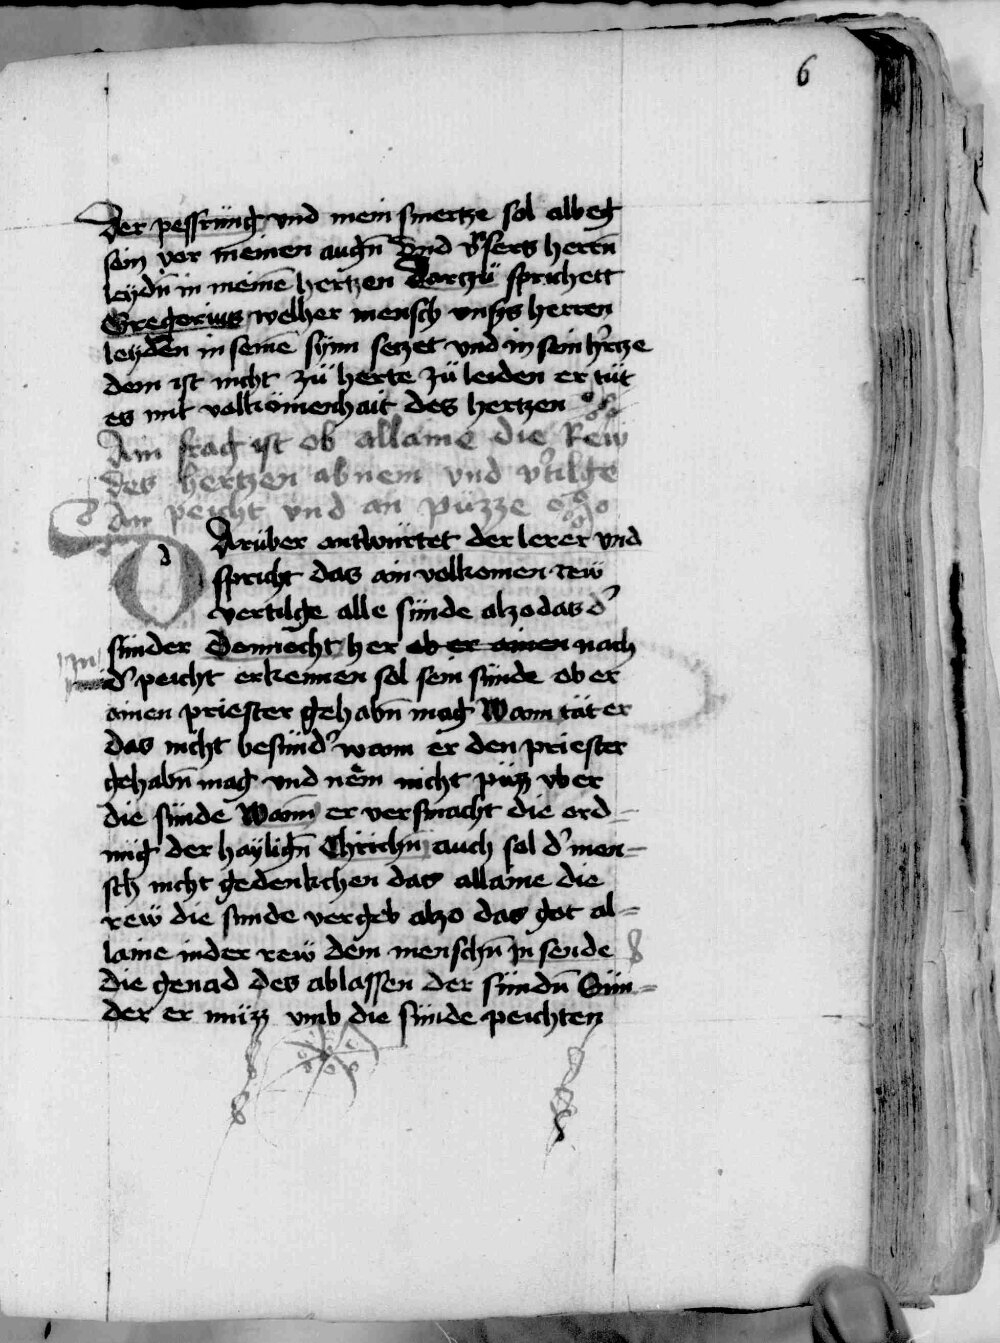 6
Der pessrüng vnd mein smertze sol albeg
sein vor meinen augn̄ Vnd vͥsers herrn̄
leydn̄ in meinē hertzen Dortzü sprichett
Gregorius welher mensch vnsͥs herren
leyden in seinē synn setzet vnd in sein hͥtze
dem ist nicht zü herte zü leiden er tüt
es mit volkömenhait des hertzen
Ain frag ist ob allaine die Rew
des hertzen abnem vnd vͥtilge
An peicht vnd an püzze
d
DArüber antwürtet der lerer vnd
spricht das ain volkomen rew
vertilge alle sünde alzo das dͥ
sünder Dennocht her ob er ainen nach
dͥ peicht erkennen sol sein sünde ob er
ainen priester gehabn̄ mag Wann tät er
das nicht besündͥ wann er den priester
gehabn̄ mag vnd nēm nicht püzz vber
die sünde Wann er versmacht die ord-
nüg der haylign̄ Christn̄ auch sol dͥ men-
sch nicht gedenkchen das allaine die
rew die sunde vergeb alzo das got al-
laine inder rew dem menschn̄ jn sende
die genad des ablassen der sündn̄ Sün-
der er müzz vmb die sünde peichten